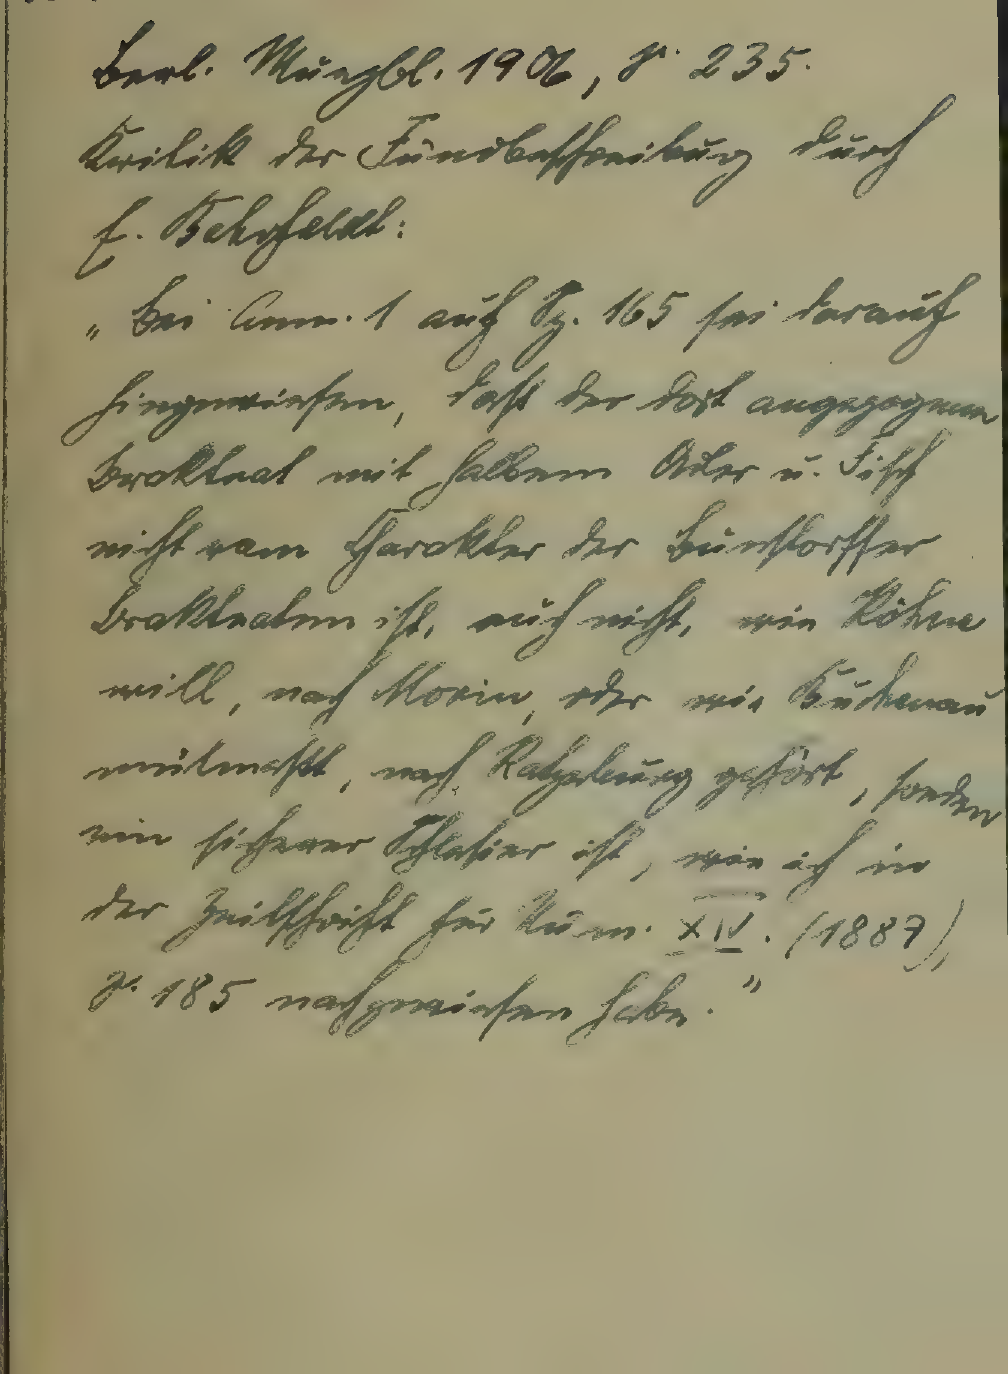 Berl. Münzbl. 1906, S. 235.
Kritik der Fundbeschreibung durch
E. Bahrfeldt:
„Bei Anm. 1 auf Sp. 165 sei darauf
hingewiesen, daß der dort angezogene
Brakteat mit halbem Adler u. Fisch
nicht vom Charakter der Bünstorffer
Brakteaten ist, auch nicht, wie
will, nach oder wie Buchenau
mutmaßt, nach Ratzeburg gehört, sondern
ein sicherer Schlesier ist, wie ich in
der Zeitschrift für Num. XIV. (1887),
S. 185 nachgewiesen habe."